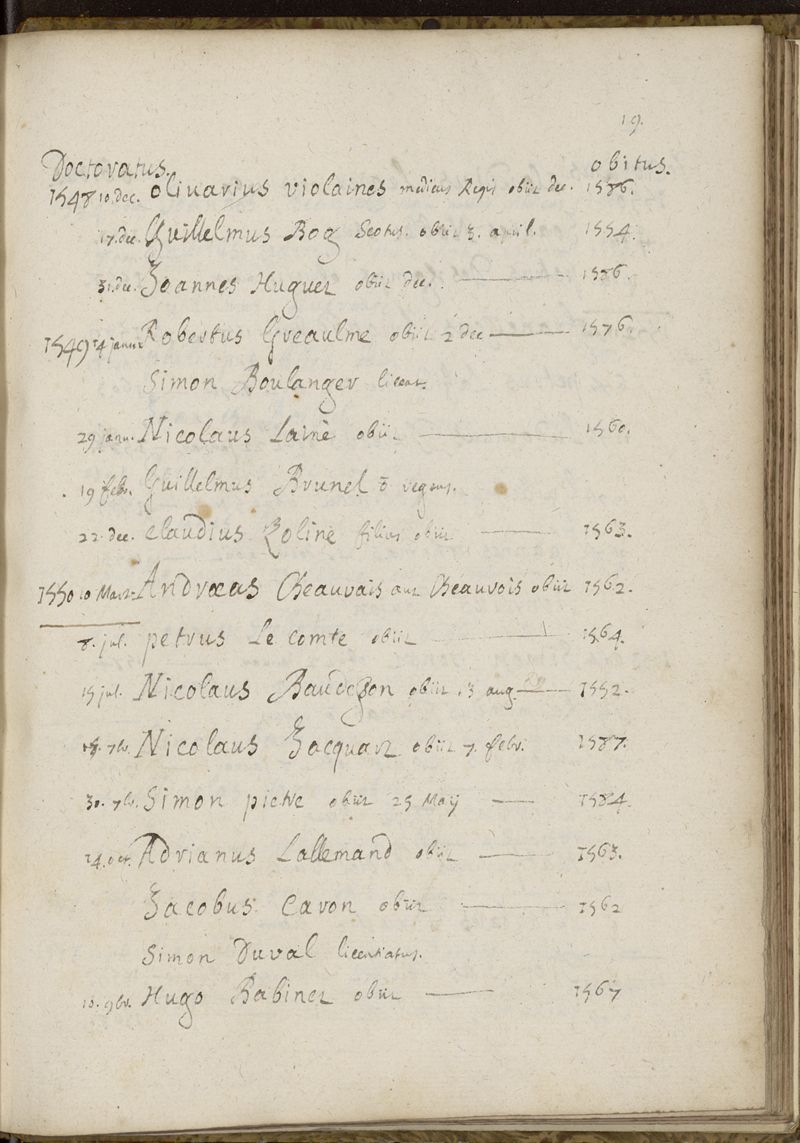 19.
Doctoratus. obitus.
1548 10 dec. olivarius violaines medicus Regis obiit dec. 1586.
17. dec. Guillelmus Bog Scotus. obiit 3. april. 1554.
31. dec. Joannes Huguet obiit dec. 1586.
1549 24 janu. Robertus Greaulme obiit 2 dec 1576.
Simon Boulanger licent.
29 janu. Nicolaus Lainé obiit 1560.
19 febr. Guillelmus Brunel õ regens.
22. dec. claudius Roline filius obiit 1563.
1550 10 Mart. Andræas Cheauvais aut Cheauvois obiit 1562.
8. jul. petrus Le comte obiit 1564.
15 jul. Nicolaus Baudeson obiit 13 aug. 1552.
18. 7br. Nicolaus Jacquart obiit 7. febr. 1587.
30. 7br. Simon pietre obiit 25 May 1584.
24. oct. Adrianus Lallemand obiit 1563.
Jacobus Cavon obiit 1562
Simon Duval licentiatus.
10. 9br. Hugo Babinet obiit 1567